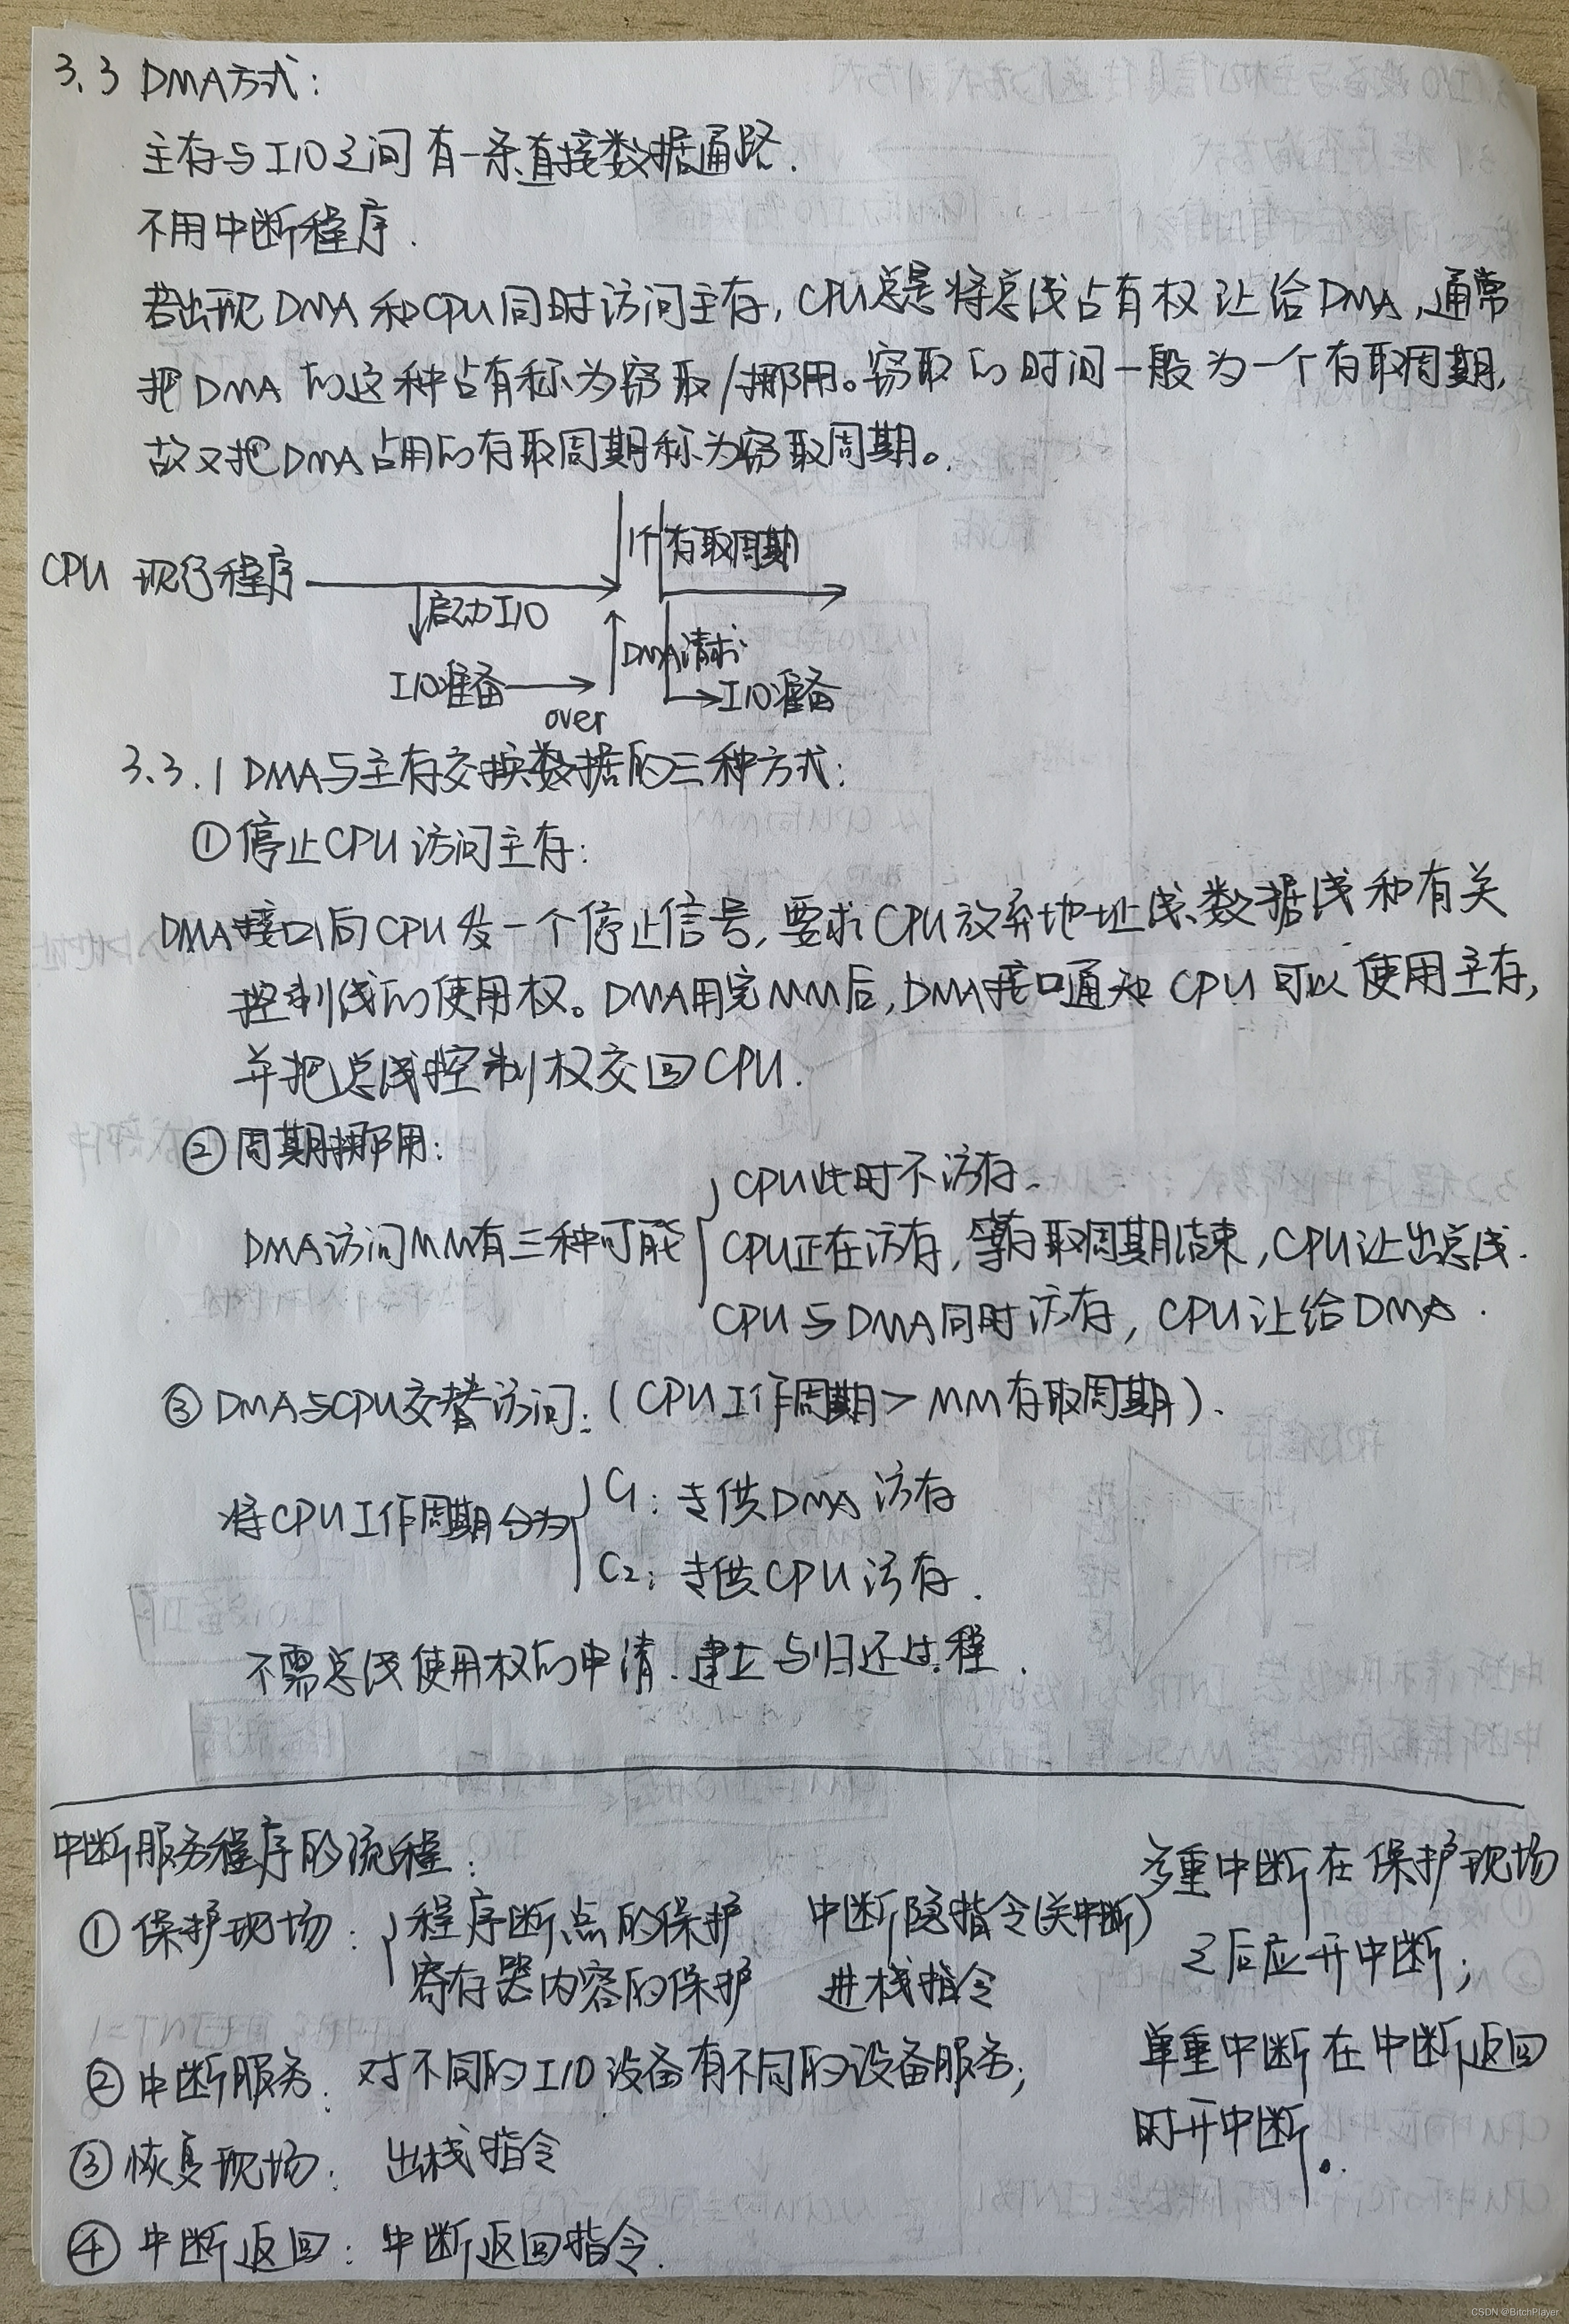 3.3 DMA方式：
主存与I/O之间有一条直接数据通路．
不用中断程序．
若出现DMA和CPU同时访问主存，CPU总是将总线占有权让给DMA，通常
把DMA的这种占有称为窃取/挪用。窃取的时间一般为一个存取周期，
故又把DMA占用的存取周期称为窃取周期。
1个存取周期
CPU 现行程序
启动I/O
DMA请求
I/O准备
I/O准备
over
3.3.1 DMA与主存交换数据的三种方式：
①停止CPU访问主存：
DMA接口向CPU发一个停止信号，要求CPU放弃地址线、数据线和有关
控制线的使用权。DMA用完MM后，DMA接口通知CPU可以使用主存，
并把总线控制权交回CPU．
②周期挪用：
CPU此时不访存．
DMA访问MM有三种可能
CPU正在访存，等存取周期结束，CPU让出总线．
CPU与DMA同时访存，CPU让给DMA．
③DMA与CPU交替访问：（CPU工作周期＞MM存取周期）．
将CPU工作周期分为
C1：专供DMA访存
C2：专供CPU访存．
不需总线使用权的申请、建立与归还过程．
中断服务程序的流程：
①保护现场：
程序断点的保护 中断隐指令(关中断)
寄存器内容的保护 进栈指令
②中断服务：对不同的I/O设备有不同的设备服务；
③恢复现场：出栈指令
④中断返回：中断返回指令．
多重中断在保护现场
之后应开中断；
单重中断在中断返回
时开中断。
CSDN @BitchPlayer